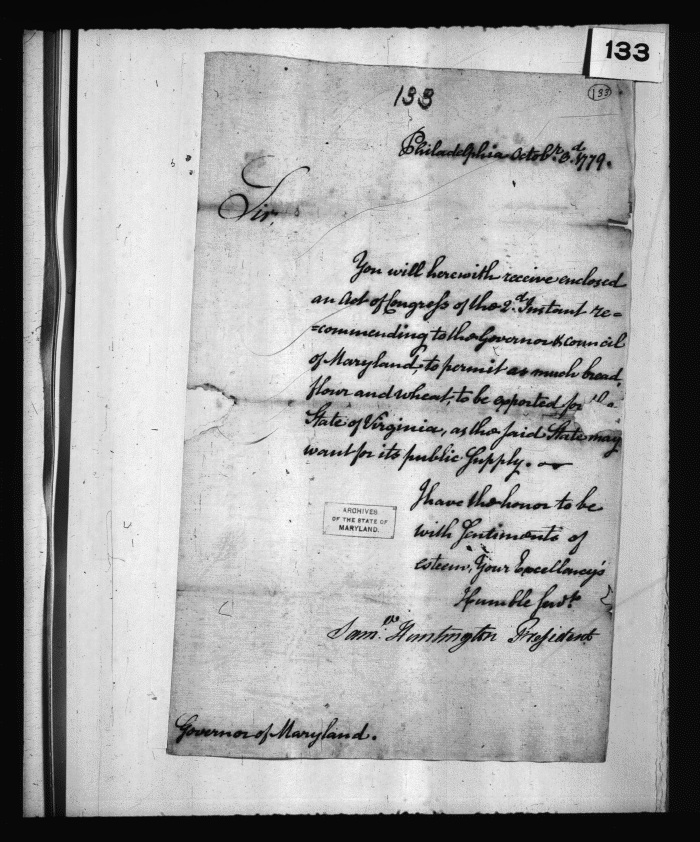 133
133
133
Philadelphia Octobr. 3d. 1779.
Sir,
You will herewith receive enclosed
an Act of Congress of the 2d. Instant re=
=commending to the Governor & council
of Maryland, to permit as much bread,
flour and wheat, to be exported for the
State of Virginia, as the said State may
want for its public Supply.
I have the honor to be
with Sentiments of
esteem, Your Excellency's
Humble Servt.
Saml. Huntington President
ARCHIVES
OF THE STATE OF
MARYLAND.
Governor of Maryland.